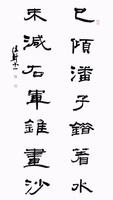 已傾潘子錯著水
未減右軍錐畫沙